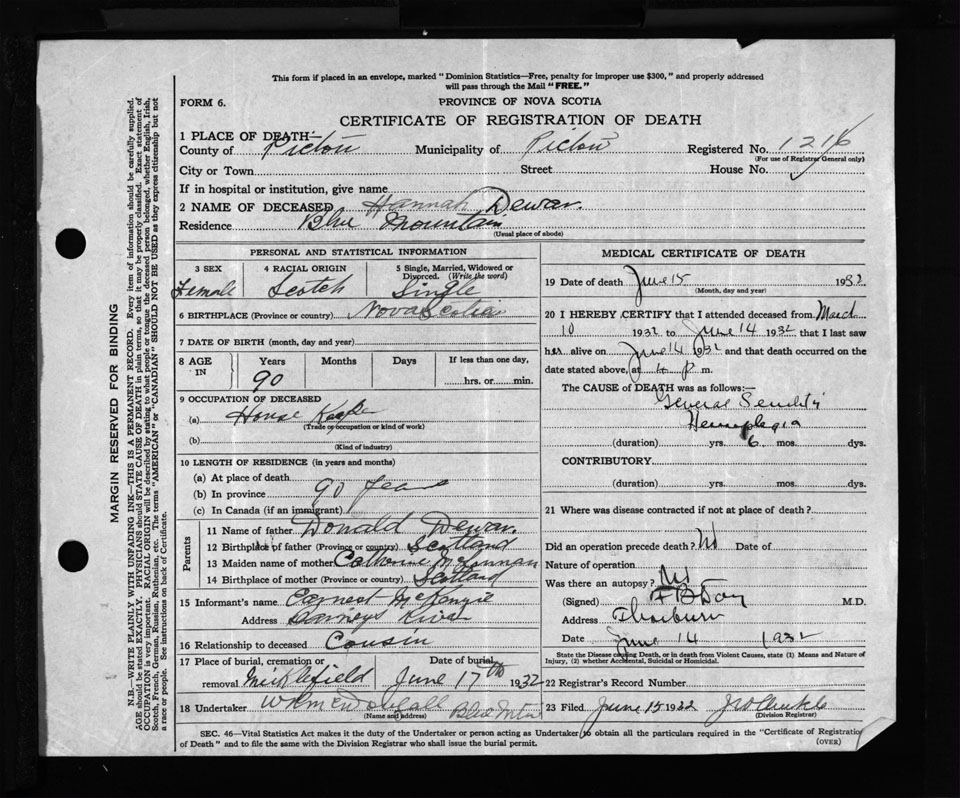 This form if placed in an envelope, marked "Dominion Statistics—Free, penalty for improper use $300," and properly addressed
will pass through the Mail "FREE."
FORM 6.
PROVINCE OF NOVA SCOTIA
CERTIFICATE OF REGISTRATION OF DEATH
1 PLACE OF DEATH—
County of Pictou Municipality of Pictou Registered No. 1216
(For use of Registrar General only)
City or Town Street House No.
If in hospital or institution, give name
2 NAME OF DECEASED Hannah Dewar
Residence Blue Mountain
(Usual place of abode)
PERSONAL AND STATISTICAL INFORMATION
3 SEX 4 RACIAL ORIGIN 5 Single, Married, Widowed or
Divorced. (Write the word)
Female Scotch Single
6 BIRTHPLACE (Province or country) Nova Scotia
7 DATE OF BIRTH (month, day and year)
8 AGE IN Years Months Days If less than one day,
90 hrs. or min.
9 OCCUPATION OF DECEASED
(a) House Keeper
(Trade or occupation or kind of work)
(b)
(Kind of industry)
10 LENGTH OF RESIDENCE (in years and months)
(a) At place of death
(b) In province 90 years
(c) In Canada (if an immigrant)
Parents
11 Name of father Donald Dewar
12 Birthplace of father (Province or country) Scotland
13 Maiden name of mother Catherine McLennan
14 Birthplace of mother (Province or country) Scotland
15 Informant's name Earnest McKenzie
Address Barneys River
16 Relationship to deceased Cousin
17 Place of burial, cremation or Date of burial
removal Micklefield June 17th 1932
18 Undertaker Blue Mtn
(Name and address)
MEDICAL CERTIFICATE OF DEATH
19 Date of death June 15 1932
(Month, day and year)
20 I HEREBY CERTIFY that I attended deceased from March
10 1932 to June 14 1932 that I last saw
her alive on June 14 1932 and that death occurred on the
date stated above, at 4 p m.
The CAUSE of DEATH was as follows:—
General Senility
Hemiplegia
(duration) yrs. 6 mos. dys.
CONTRIBUTORY
(duration) yrs. mos. dys.
21 Where was disease contracted if not at place of death?
Did an operation precede death? No Date of
Nature of operation
Was there an autopsy? No
(Signed) F B Day M.D.
Address Thorburn
Date June 14 1932
State the Disease causing Death, or in death from Violent Causes, state (1) Means and Nature of
Injury, (2) whether Accidental, Suicidal or Homicidal.
22 Registrar's Record Number
23 Filed June 15 1932
(Division Registrar)
SEC. 46—Vital Statistics Act makes it the duty of the Undertaker or person acting as Undertaker to obtain all the particulars required in the "Certificate of Registration
of Death" and to file the same with the Division Registrar who shall issue the burial permit.
(OVER)
MARGIN RESERVED FOR BINDING
N.B.—WRITE PLAINLY WITH UNFADING INK—THIS IS A PERMANENT RECORD. Every item of information should be carefully supplied.
AGE should be stated EXACTLY. PHYSICIANS should STATE CAUSE OF DEATH in plain terms, so that it may be properly classified. Exact statement of
OCCUPATION is very important. RACIAL ORIGIN will be described by stating to what people or tongue the deceased person belonged, whether English, Irish,
Scotch, French, German, Russian, Ruthenian, etc. The terms "AMERICAN" or "CANADIAN" SHOULD NOT BE USED as they express citizenship but not
a race or people. See instructions on back of Certificate.